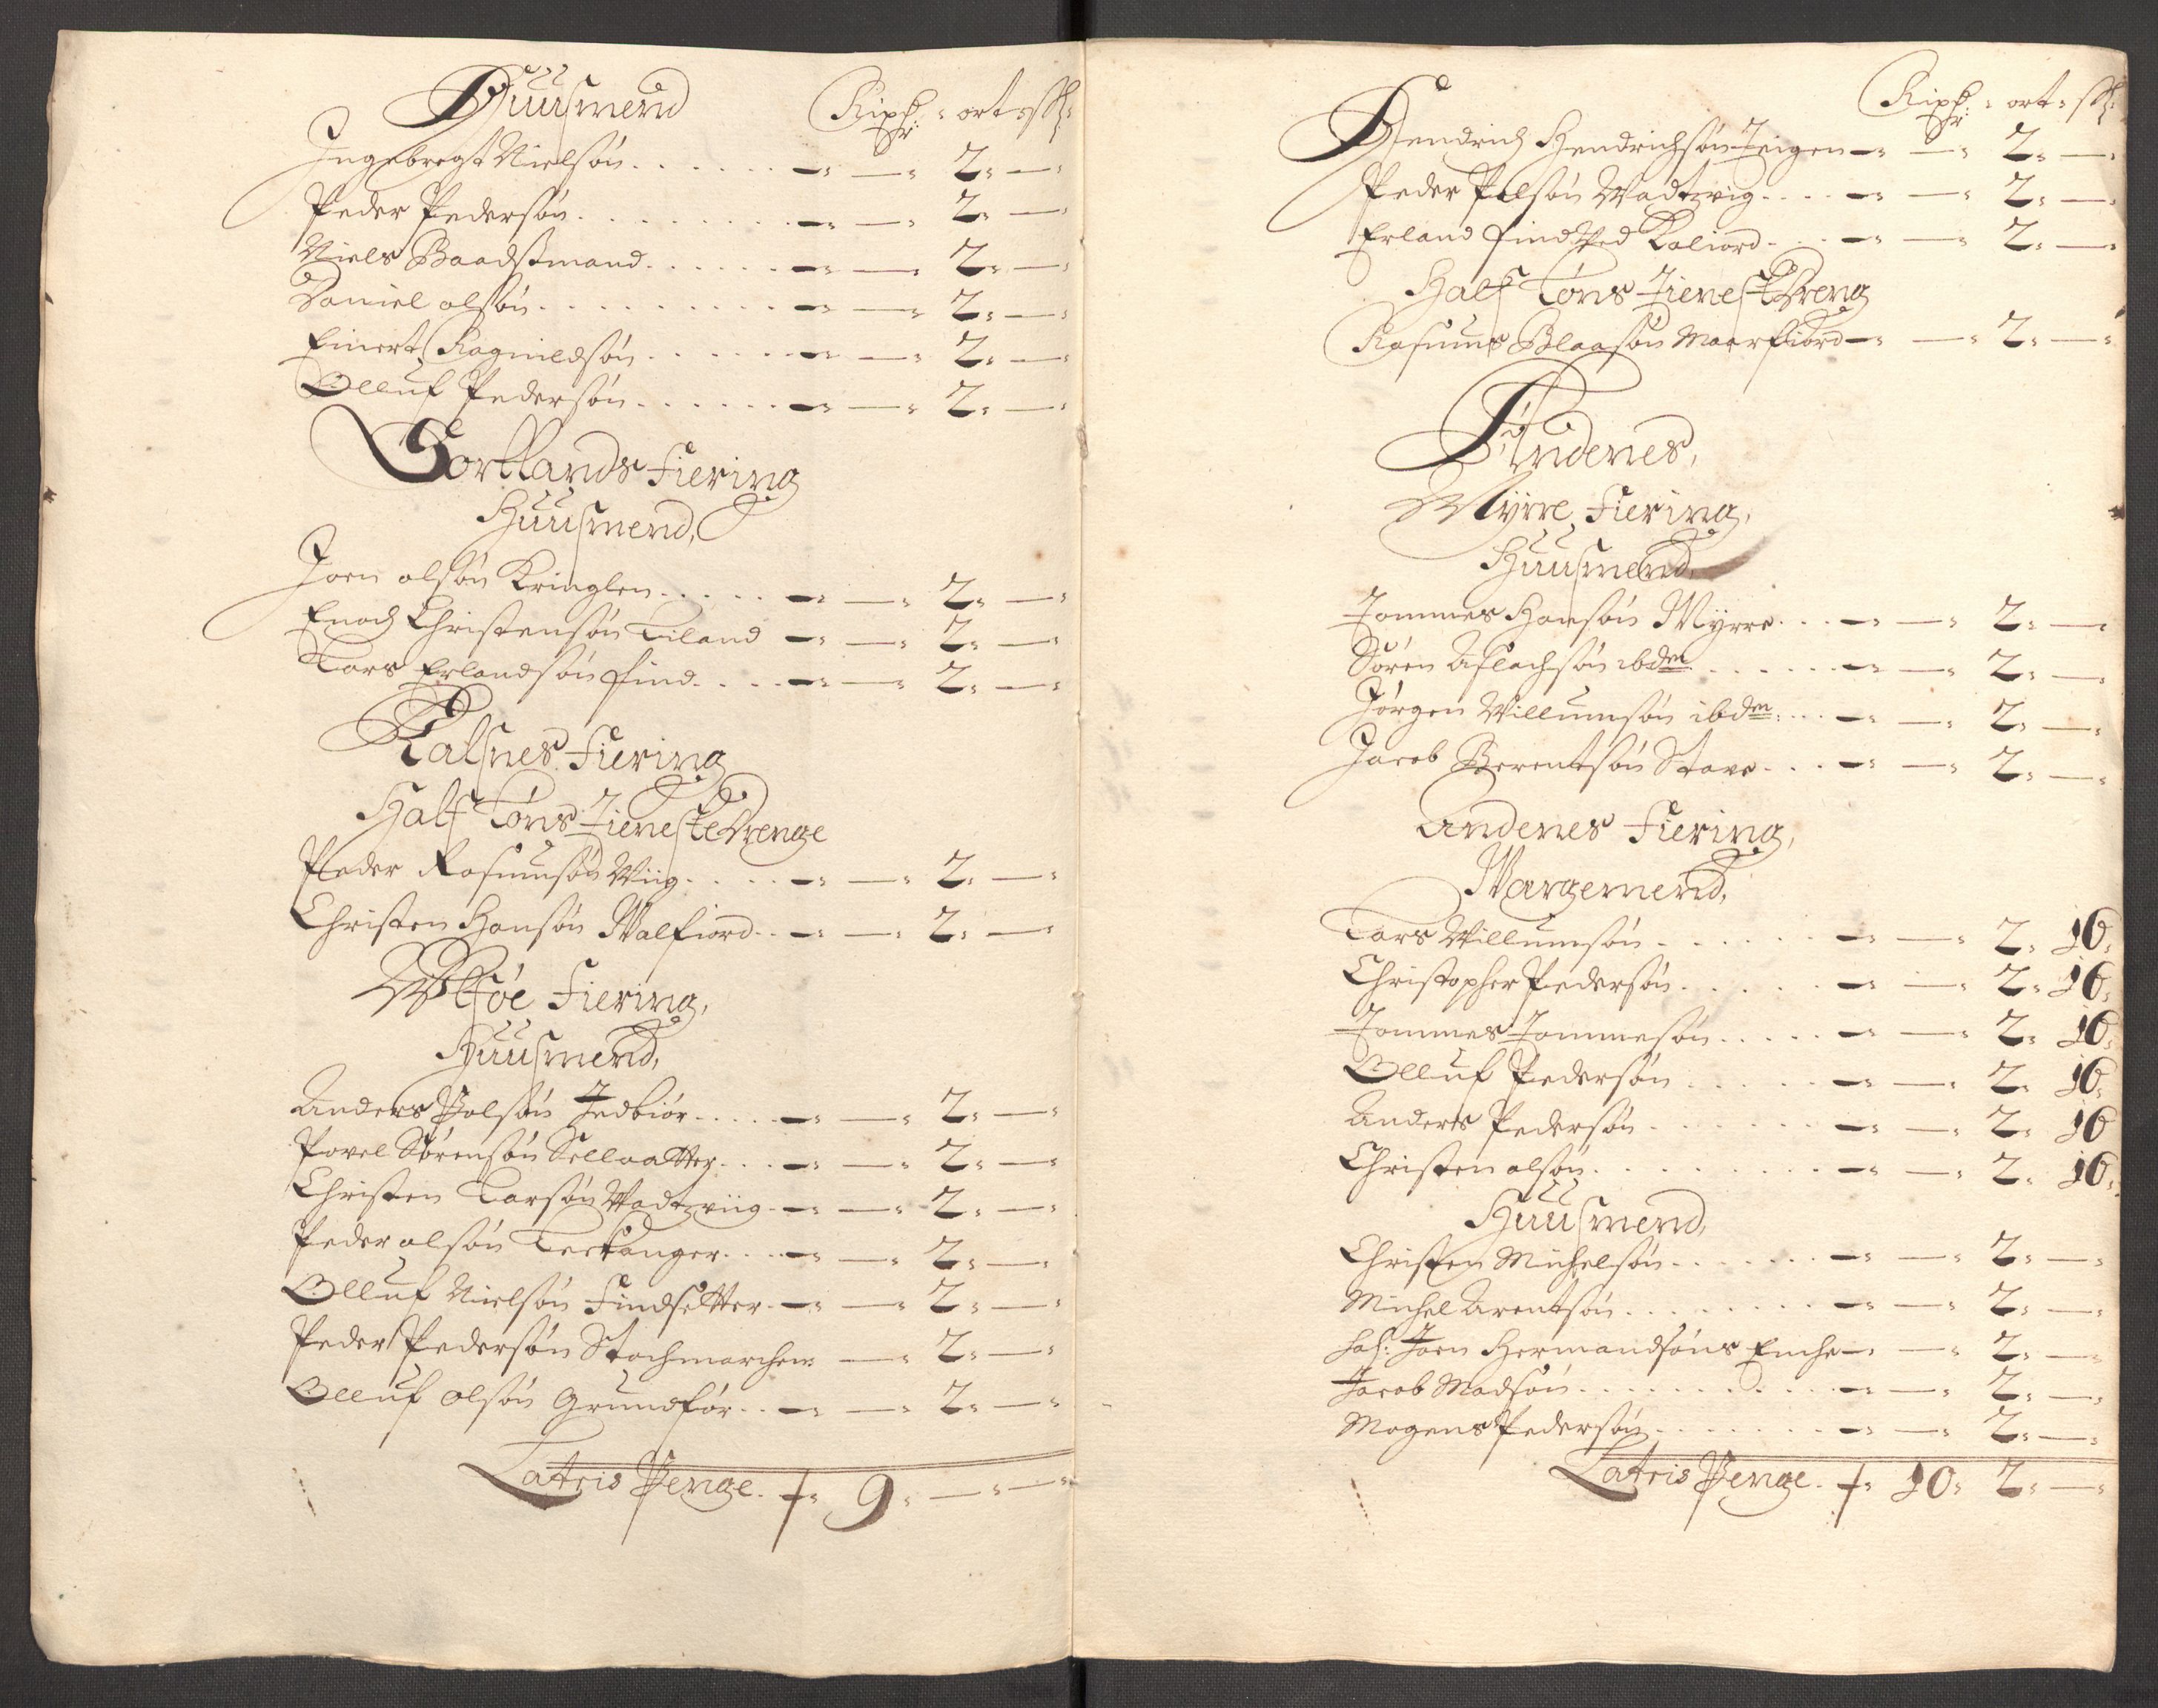 Huusmend Rixdr: ort: sk:
Ingebregt Nielsøn ...... — — 2: —
Peder Pedersøn ........ — — 2: —
Niels Baadsmand ...... — — 2: —
Daniel olsøn ......... — — 2: —
Einert Ragnildsøn ...... — — 2: —
Olluf Pedersøn ...... — — 2: —
Sortlands Fiering
Huusmend,
Joen olsøn Kringlen ..... — — 2: —
Enoch Christensøn Liland — — 2: —
Lars Erlandsøn find .... — — 2: —
Kalsnes Fiering
Half Løns TienesteDrenge
Peder Rasmusøn Wiig .... — — 2: —
Christen Hansøn Walfiord .. — — 2: —
Fiering,
Huusmend,
Anders Polsøn .... — — 2: —
Povel Sørensøn Sellvatter ... — — 2: —
Christen Larsøn Wadtzviig — — 2: —
Peder olsøn .... — — 2: —
Olluf Nielsøn Findsetter — — 2: —
Peder Pedersøn Stochmarchen — 2: —
Olluf Olsøn Grundfør .. — — 2: —
Latris Penge. 9: — —
Rixdr: ort: sk:
Hendrich Hendrichsøn Teigen — — 2: —
Peder Polsøn Wadtzvig .... — — 2: —
Erland find Ved Kaliord .. — — 2: —
Half Løns TienesteDreng
Rasmus Blaasøn Maarfiord — — 2: —
Andenes,
Myrre Fiering,
Huusmend,
Tommes Hansøn Myrre ... — — 2: —
Søren Aslachsøn ibdm ...... — — 2: —
Jørgen Willumsøn ibdm: ... — — 2: —
Jacob Berentsøn Stave ... — — 2: —
Andenes Fiering,
Wargemend,
Lars Willumsøn ...... — — 2: 16:
Christopher Pedersøn ..... — — 2: 16:
Tommes Tommesøn ..... — — 2: 16:
Olluf Pedersøn ..... — — 2: 16:
Anders Pedersøn ...... — — 2: 16
Christen olsøn ........ — — 2: 16:
Huusmend,
Christen Michelsøn ...... — — 2: —
Michel Arentsøn ........ — — 2: —
Sal: Joen Hermandsøns Enche — — 2: —
Jacob Madsøn .......... — — 2: —
Mogens Pedersøn ....... — — 2: —
Latris Penge. 10: 2: —